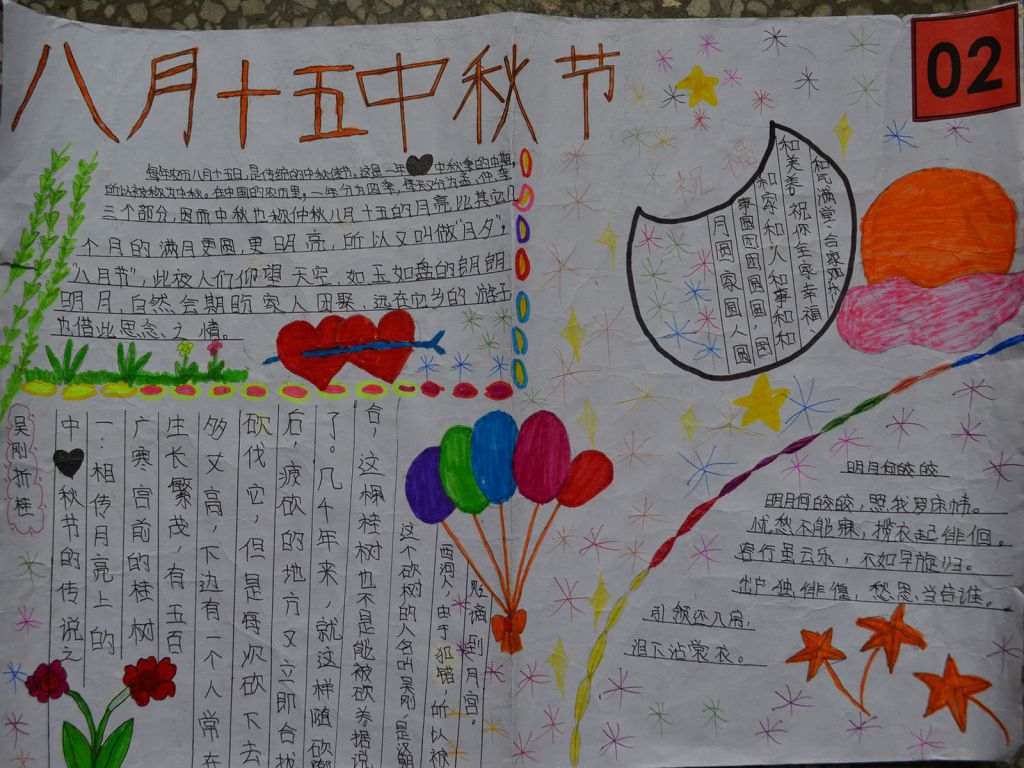 八月十五中秋节
02
每年农历八月十五日,是传统的中秋佳节。这是一年 中秋季的中期,
所以被称为中秋。在中国的农历里,一年分为四季,每季又分为孟、仲、季
三个部分,因而中秋也称仲秋八月十五的月亮比其它几
个月的满月更圆,更明亮,所以又叫做"月夕",
"八月节",此夜人们仰望天空,如玉如盘的朗朗
明月,自然会期盼家人团聚,远在他乡的游子
也借此思念之情。
祝福
和气满堂,合家欢
和美美祝你全家幸福
和家和人和事和和
事圆团圆圆,圆
月圆家圆人圆
吴刚折桂
中秋节的传说之
一:相传月亮上的
广寒宫前的桂树
生长繁茂,有五百
多丈高,下边有一个人常在
砍伐它,但是每次砍下去
后,被砍的地方又立即合拢
了。几千年来,就这样随砍
合,这棵桂树也不是能被砍
这个砍树的人名叫吴刚,是
西河人,由于犯错,所以被
贬谪到月宫。
明月何皎皎
明月何皎皎,照我罗床帏。
忧愁不能寐,揽衣起徘徊。
客行虽云乐,不如早旋归。
出户独徘徊,愁思当告谁。
引领还入房,
泪下沾裳衣。